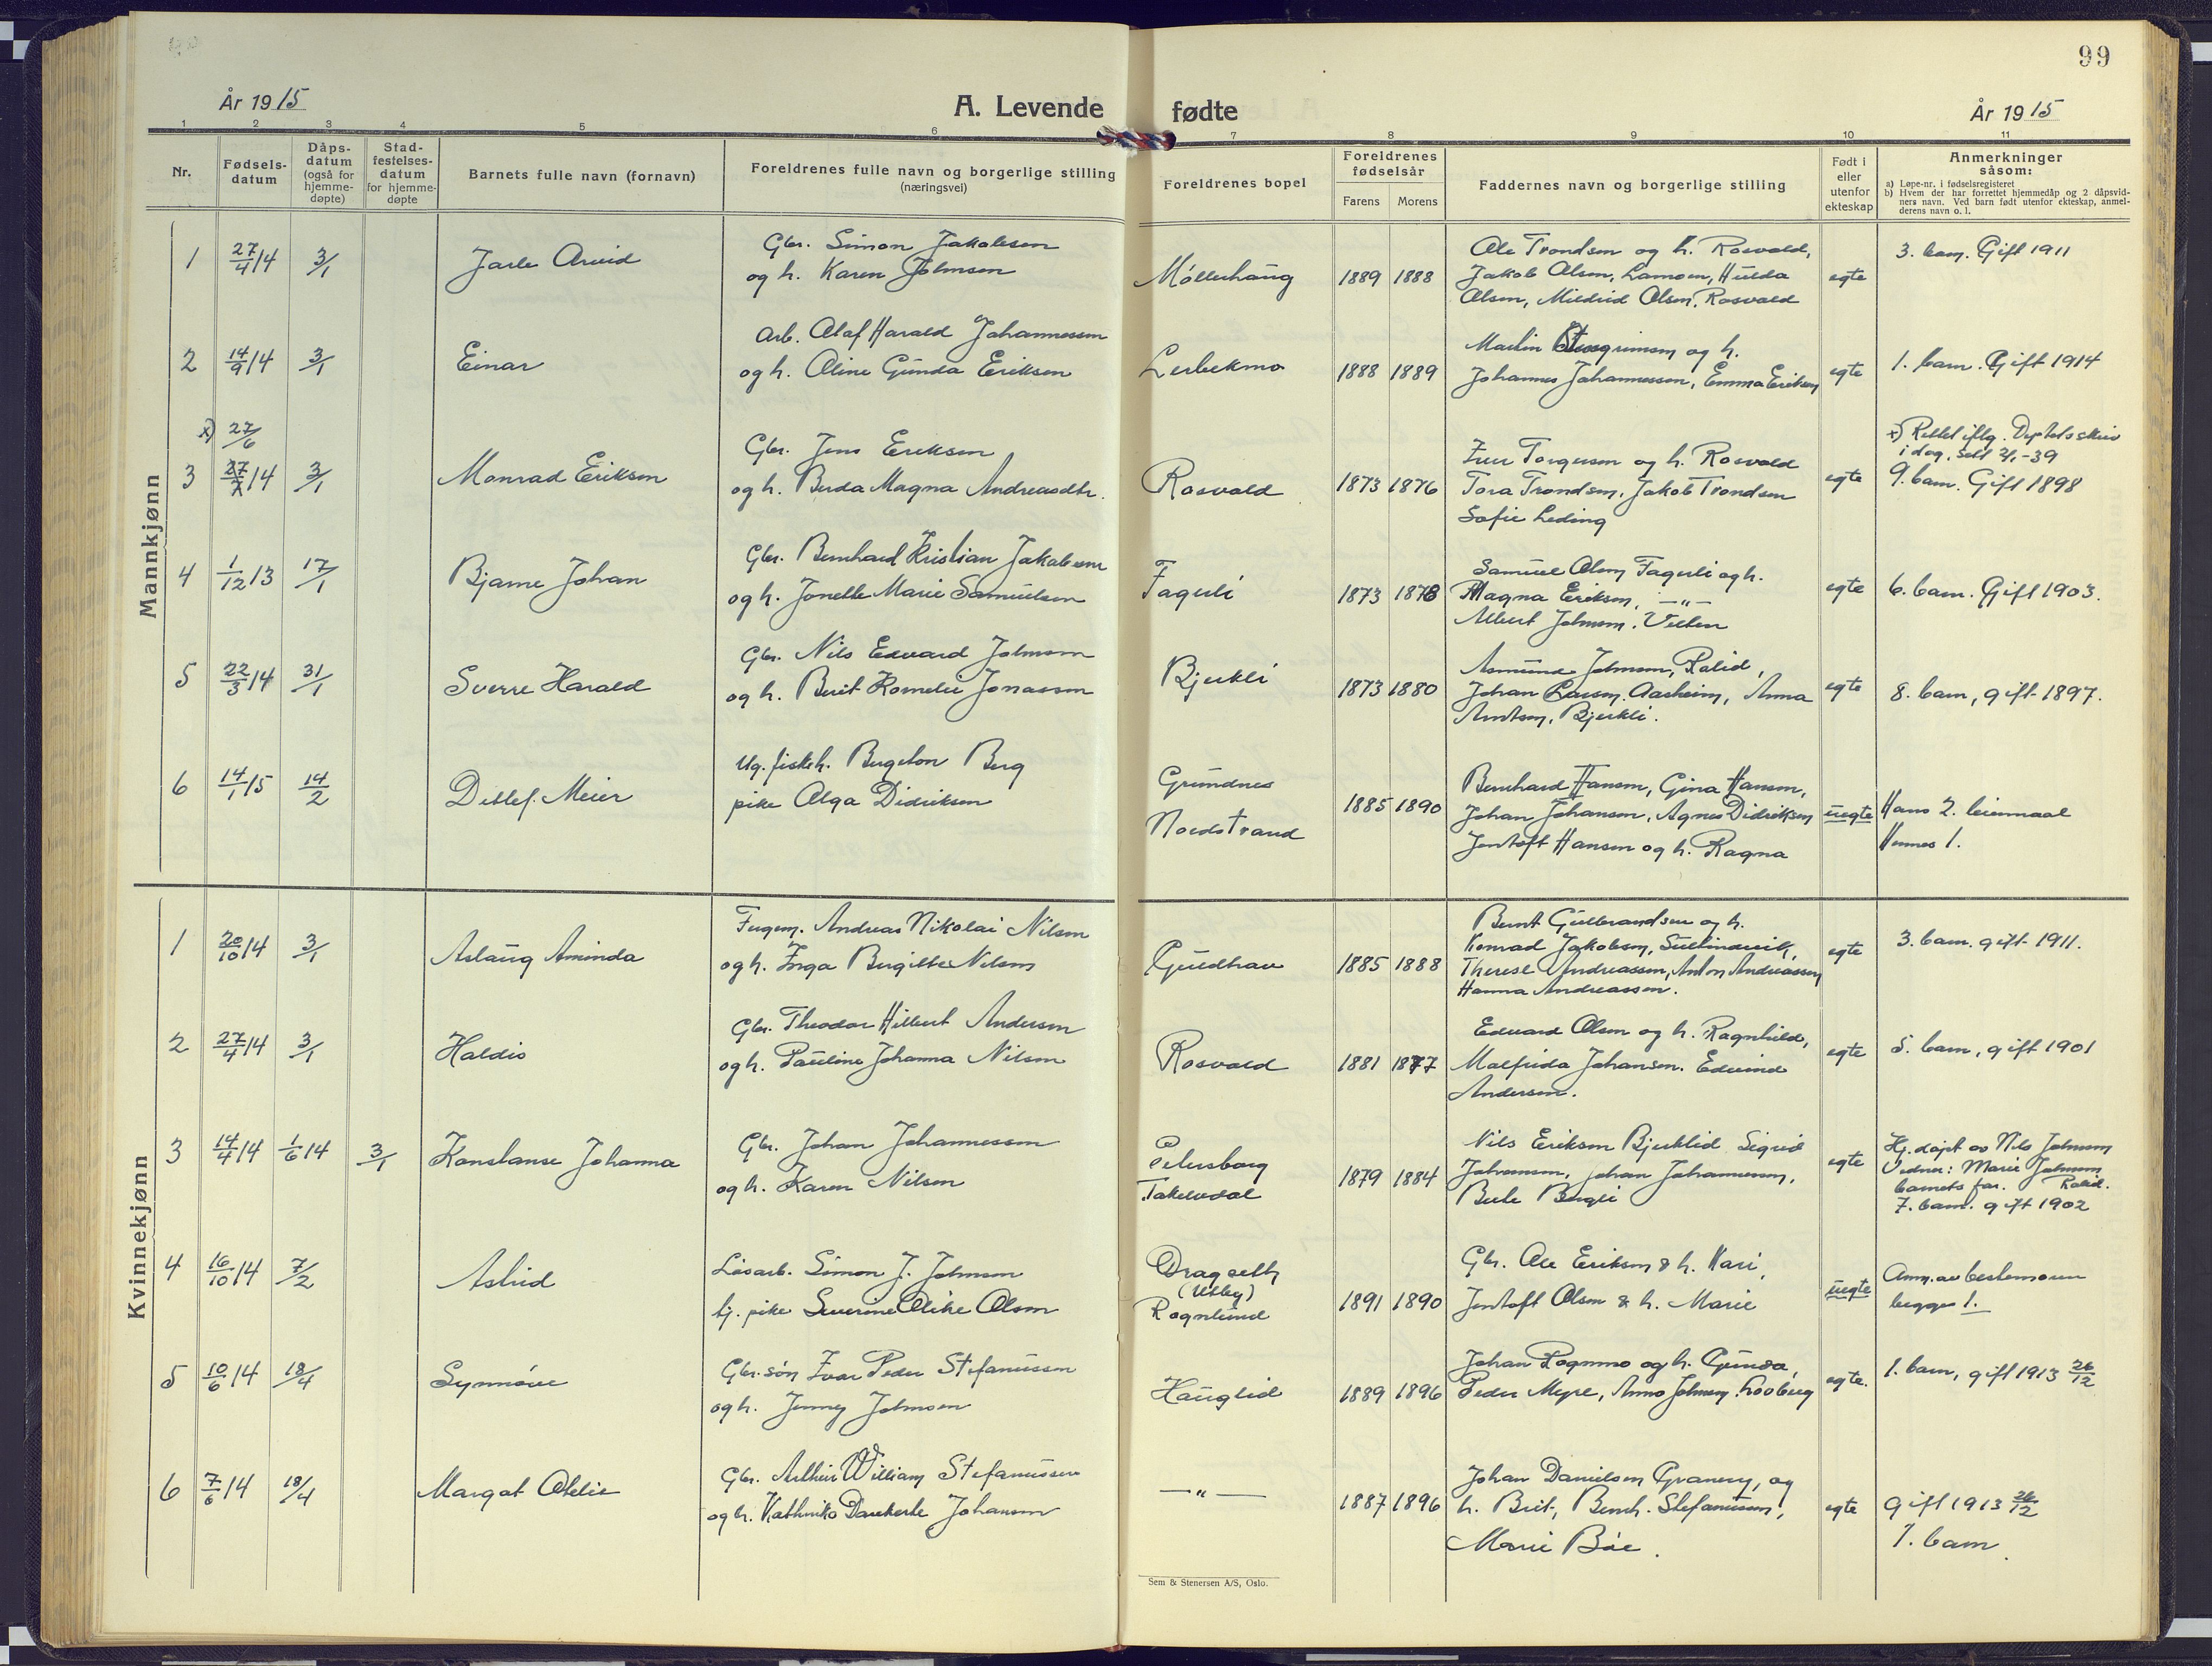 99
År 1915
A. Levende fødte
År 1915
1 2 3 4 5 6 7 8 9 10 11
Nr.
Fødsels-
datum
Dåps-
datum
(også for
hjemme-
døpte)
Stad-
festelses-
datum
for hjemme-
døpte
Barnets fulle navn (fornavn)
Foreldrenes fulle navn og borgerlige stilling
(næringsvei)
Foreldrenes bopel
Foreldrenes
fødselsår
Farens Morens
Faddernes navn og borgerlige stilling
Født i
eller
utenfor
ekteskap
Anmerkninger
såsom:
a) Løpe-nr. i fødselsregisteret
b) Hvem der har forrettet hjemmedåp og 2 dåpsvid-
ners navn. Ved barn født utenfor ekteskap, anmel-
derens navn o. l.
Mannkjønn
1 27/4 14 3/1 Jarle Arvid
Gbr. Simon Jakobsen
og h. Karen Johnsen
Møllerhaug 1889 1888
Ole Trondsen og h. Rosvold,
Jakob Olsen, Lamoen, Hulda
Olsen, Mildrid Olsen, Rosvold
egte
3. barn. Gift 1911
2 14/9 14 3/1 Einar
Arb. Olaf Harald Johannessen
og h. Oline Gunda Eriksen
Lerbekmo 1888 1889
Martin og h.
Johannes Johannessen, Emma Eriksen
egte
1. barn. Gift 1914
x) 27/6
3 27/7 14 3/1 Monrad Eriksen
Gbr. Jens Eriksen
og h. Berda Magna Andreasdtr.
Rosvold 1873 1876
Iver Torgersen og h. Rosvold
Tora Trondsen, Jakob Trondsen
Sofie Leding
egte
x) Rettet iflg. Dep.tets skriv
i dag,
9. barn. Gift 1898
4 1/12 13 17/1 Bjarne Johan
Gbr. Bernhard Kristian Jakobsen
og h. Jonette Marie Samuelsen
Fagerli 1873 1878
Samuel Olsen Fagerli og h.
Magna Eriksen, —„—
Albert Johnsen, Velten
egte
6. barn. Gift 1903.
5 22/3 14 31/1 Sverre Harald
Gbr. Nils Edvard Johnsen
og h. Berit Kornelie Jonassen
Bjerkli 1873 1880
Asmund Johnsen, Kalid,
Johan Larsen, Aasheim, Anna
Arntsen, Bjerkli.
egte
8. barn, gift 1897.
6 14/1 15 14/2 Detlef Meier
Ug. fiskeh. Bergeton Berg
pike Olga Didriksen
Grundnes
Nordstrand
1885 1890
Bernhard Hansen, Gina Hansen,
Johan Johansen, Agnes Didriksen
Jentoft Hansen og h. Ragna
uegte
Hans 2. leiermaal
Hennes 1.
Kvinnekjønn
1 20/10 14 3/1 Aslaug Aminda
Fergem. Andreas Nikolai Nilsen
og h. Inga Bergitte Nilsen
Guldhav 1885 1888
Bernt Gulbrandsen og h.
Konrad Jakobsen,
Therese Andreassen, Anton Andreassen
Hanna Andreassen.
egte
3. barn. gift 1911.
2 27/4 14 3/1 Haldis
Gbr. Theodor Hilbert Andersen
og h. Pauline Johanna Nilsen
Rosvold 1881 1877
Edvard Olsen og h. Ragnhild,
Malfrida Johansen. Edvind
Andersen.
egte
5. barn, gift 1901
3 14/4 14 1/6 14 3/1 Konstanse Johanna
Gbr. Johan Johannessen
og h. Karen Nilsen
Petersborg
Takelvdal
1879 1884
Nils Eriksen Bjerklid Sigrid
Johansen, Johan Johannessen,
Berte Bergli
egte
Hj. døpt av Nils Johnsen
Vidner: Marie Johnsen
barnets far. Kalid.
7. barn. gift 1902
4 16/10 14 7/2 Astrid
Løsarb. Simon J. Johnsen
tj. pike Severine Olike Olsen
Dragseth
(Utby)
Rognlund
1891 1890
Gbr. Ole Eriksen & h. Kari,
Jentoft Olsen & h. Marie
uegte
Anm. av bestemoren
begges 1.
5 10/6 14 18/4 Synnøve
Gbr.søn Ivar Peder Stefanussen
og h. Jenny Johnsen
Hauglid 1889 1896
Johan Rognmo og h. Gunda,
Peder Myre, Anna Johnsen,
egte.
1. barn, gift 1913 26/12
6 7/6 14 18/4 Margot Otelie
Gbr. Arthur William Stefanussen
og h. Johansen
—„— 1887 1896
Johan Danielsen Graneng, og
h. Brit, Bernh. Stefanussen,
Marie Bøe.
egte
gift 1913 26/12
1. barn
Sem & Stenersen A/S, Oslo.